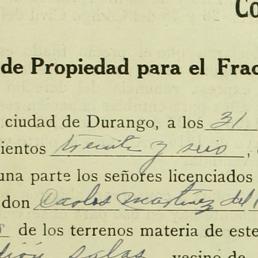 Co
de Propiedad para el Frac
ciudad de Durango, a los 31
ientos treinta y seis,
una parte los señores licenciados
don Carlos Martínez del
de los terrenos materia de este
salas, vecino de